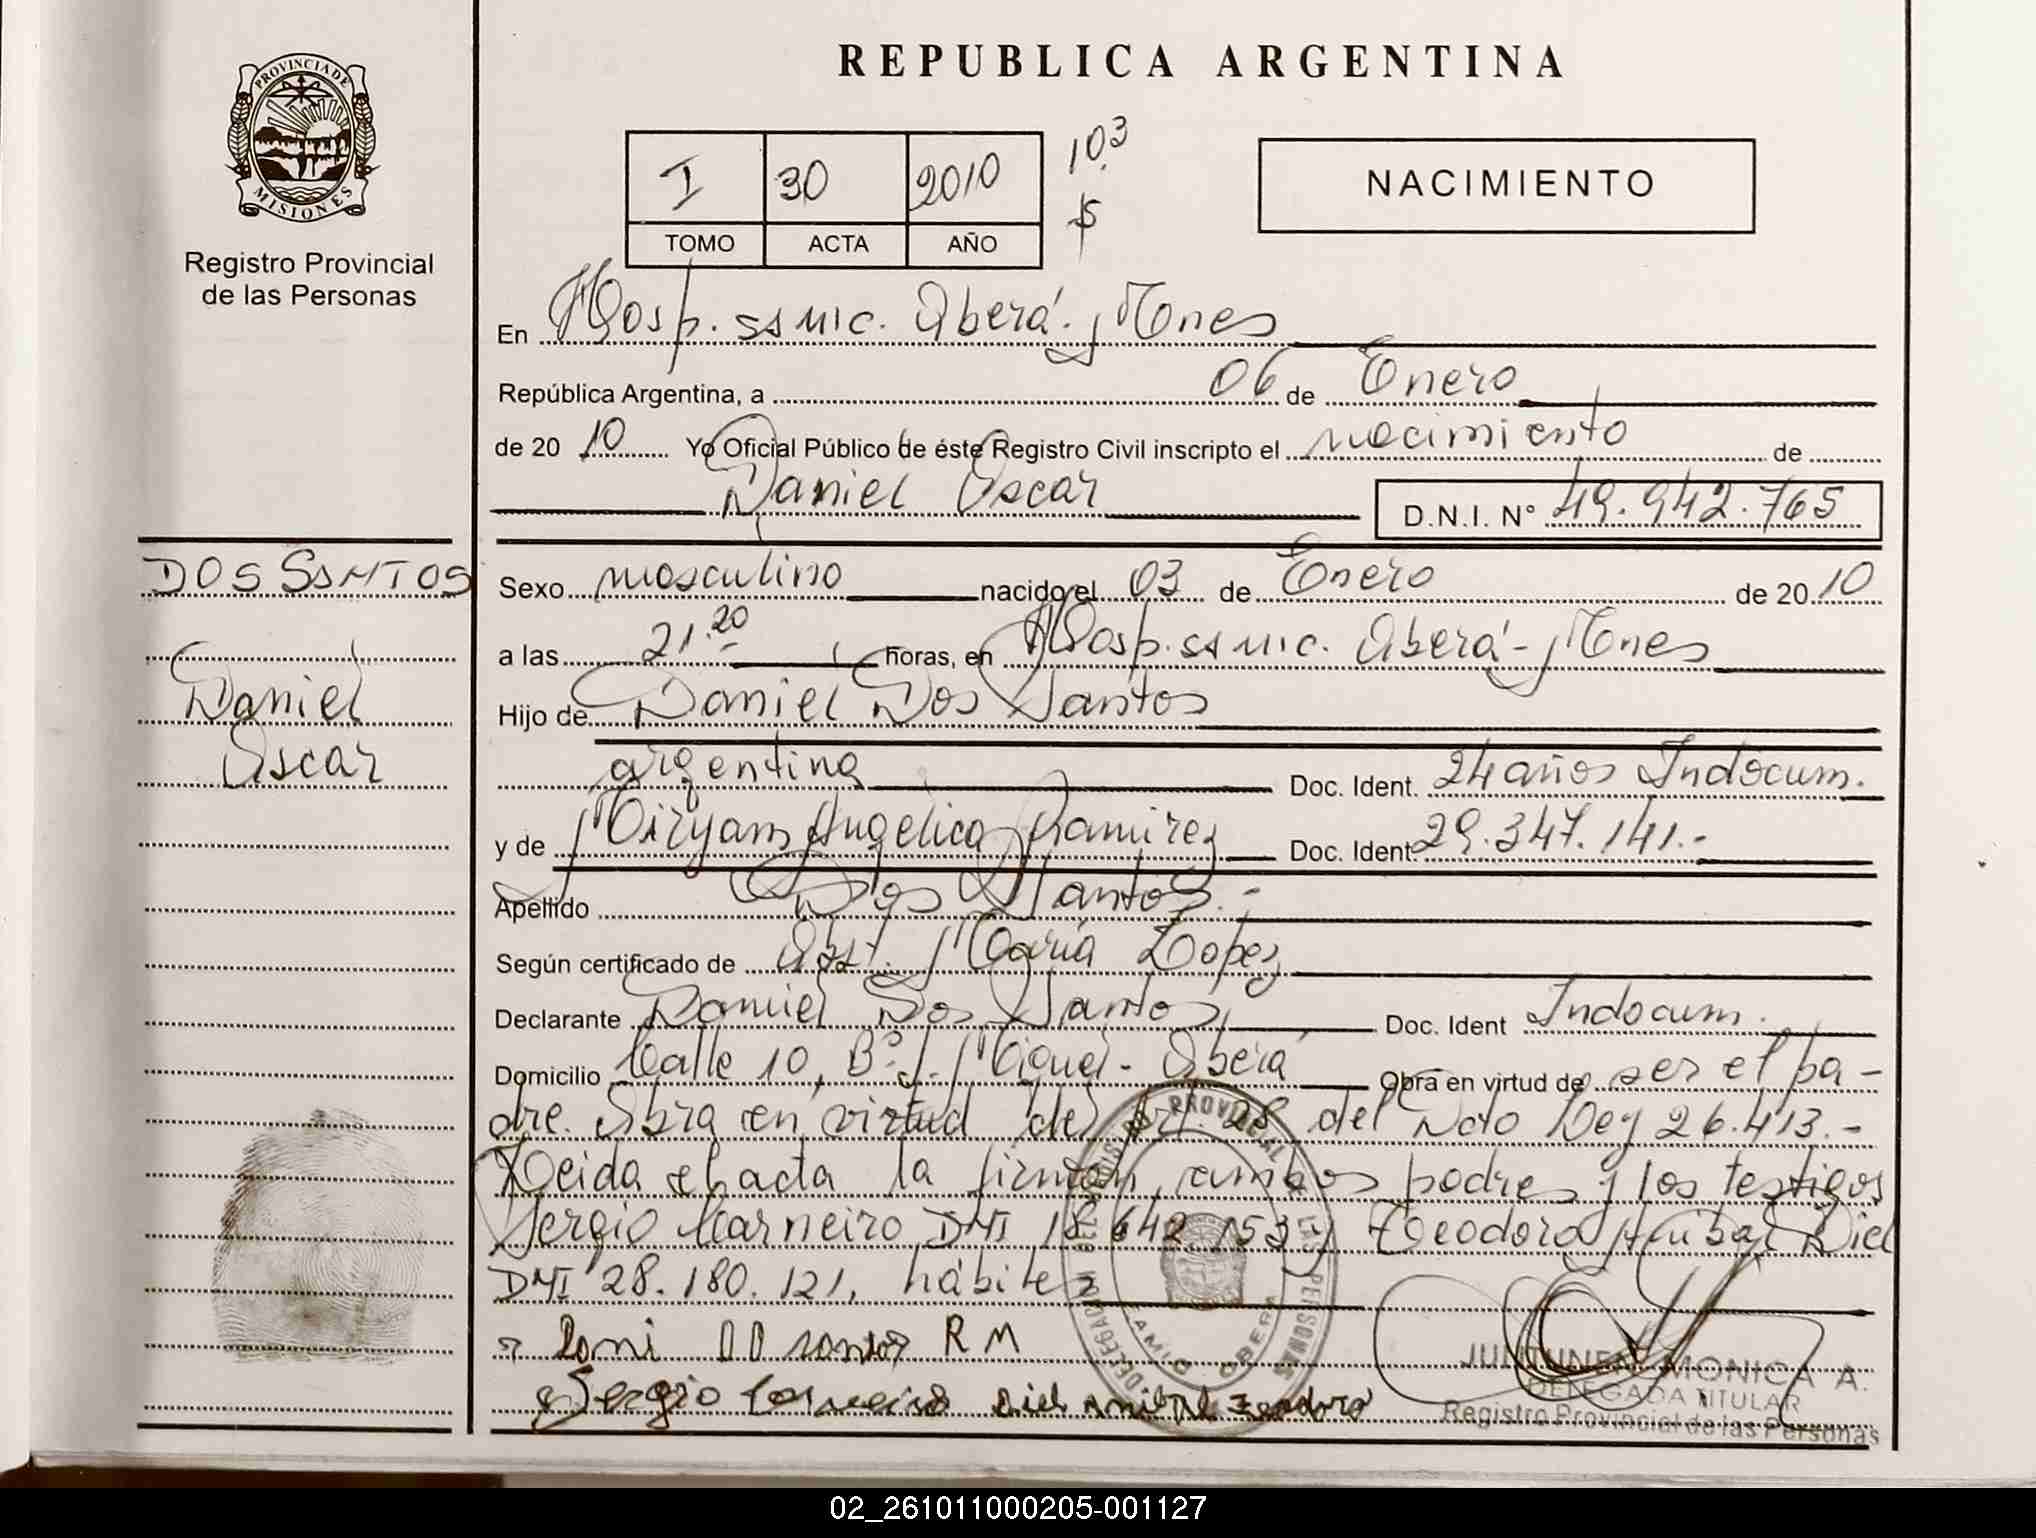 REPUBLICA ARGENTINA
PROVINCIA DE
MISIONES
Registro Provincial
de las Personas
I 30 2010
TOMO ACTA AÑO
10.3
NACIMIENTO
En Hosp. ss mic. Oberá. Mnes
República Argentina, a 06 de Enero
de 20 10 Yo Oficial Público de éste Registro Civil inscripto el nacimiento de
Daniel Oscar D.N.I. N° 49.942.765
DOS SANTOS
Daniel
Oscar
Sexo masculino nacido el 03 de Enero de 20 10
a las 21.20 horas, en Hosp. ss mic. Oberá - Mnes
Hijo de Daniel Dos Santos
argentina Doc. Ident. 24 años Indocum.
y de Miryam Angelica Ramirez Doc. Ident. 29.347.141.-
Apellido Dos Santos.-
Según certificado de Obst. María Lopez
Declarante Daniel Dos Santos Doc. Ident Indocum.
Domicilio Calle 10, B° S. Miguel - Oberá Obra en virtud de ser el pa-
dre. Obra en virtud del Art. 28 del Dto Ley 26.413.-
Leida el acta la firman ambos padres y los testigos
Sergio Carneiro DNI 18.642.153 y Teodoro Anibal Diel
DNI 28.180.121, hábiles
Dani DD santos R M
Sergio Carneiro Diel Anibal Teodoro
REGISTRO PROVINCIAL DE LAS PERSONAS
DELEGACION
OBERA
JUNTUNEN MONICA A.
DELEGADA TITULAR
Registro Provincial de las Personas
02_261011000205-001127